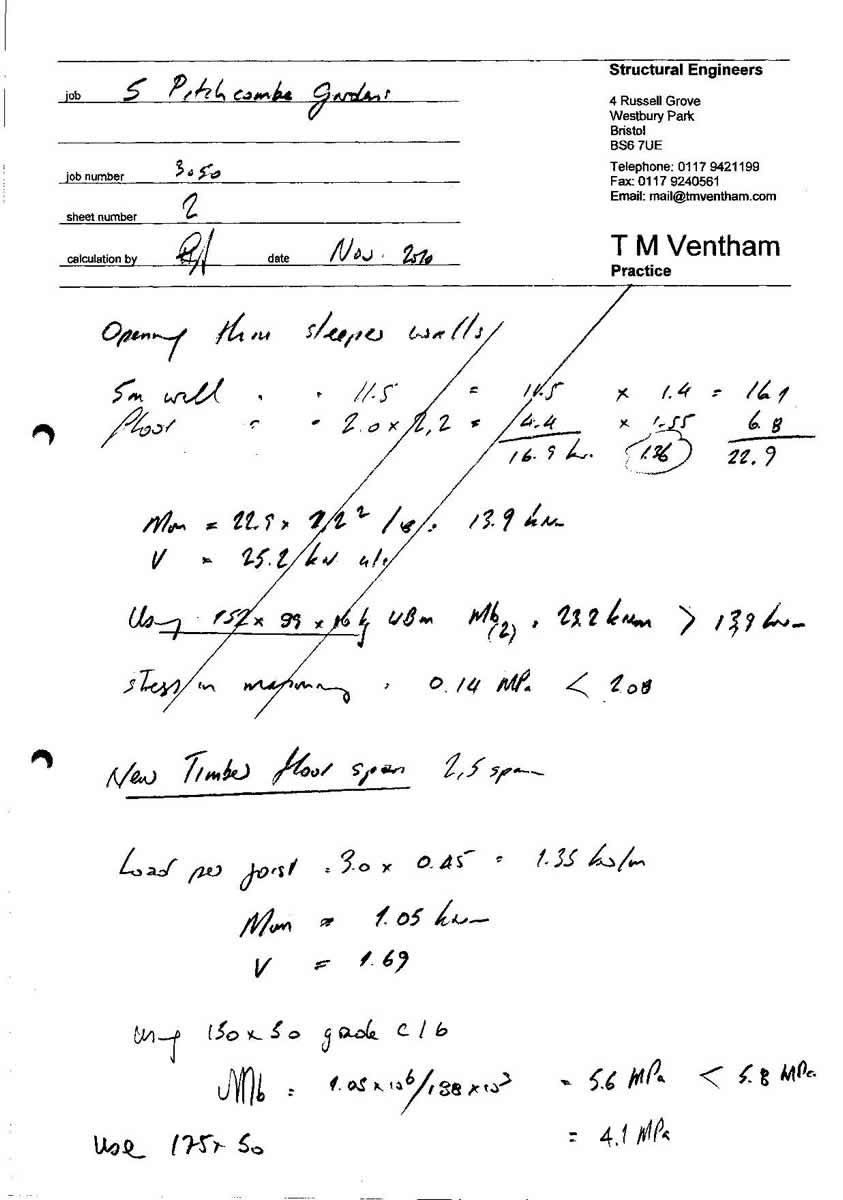 Structural Engineers
job 5 Pitchcombe Gardens
4 Russell Grove
Westbury Park
Bristol
BS6 7UE
job number 3050
Telephone: 0117 9421199
Fax: 0117 9240561
Email: mail@tmventham.com
sheet number 2
calculation by date Nov. 2010
T M Ventham
Practice
Opening thru sleeper walls
5m wall " " 11.5 = 11.5 x 1.4 = 16.1
floor " = 2.0 x 2,2 = 4.4 x 1.55 6.8
16.9 kn. 1.36 22.9
Mm = 22.9 x 2,2² /8 = 13.9 knm
V = 25.2 kN ult
Using 152 x 89 x 16 kg UBm Mb(2) = 23.2 kNm > 13,9 knm
stress in masonry = 0.14 MPa < 2.08
New Timber floor span 2,5 span
Load per joist = 3.0 x 0.45 = 1.35 kn/m
Mm = 1.05 knm
V = 1.69
Using 150 x 50 grade C16
Mb = 1.05 x 10⁶/188 x 10³ = 5.6 MPa < 5.8 MPa
Use 175 x 50 = 4.1 MPa